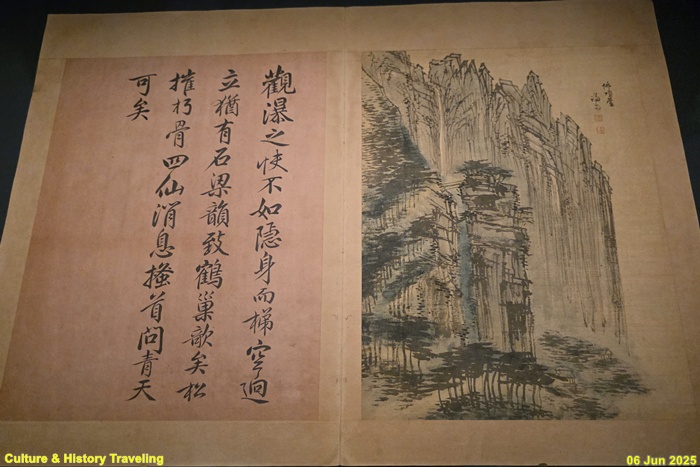 觀瀑之快不如隱身而梯空迥
立猶有石梁韻致鶴巢欹矣松
摧朽骨四仙消息搔首問青天
可矣
佛頂臺
謙齋
Culture & History Traveling
06 Jun 2025